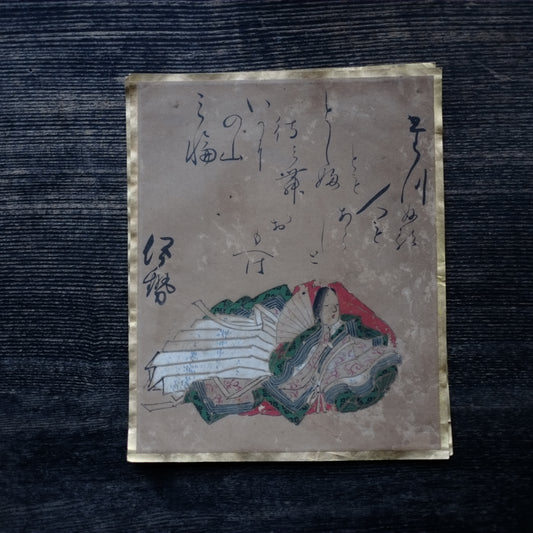 三輪
の山
いかに
待み舞
とし婦
とも
たつぬる
人も
あらしと
おも
へは
伊勢